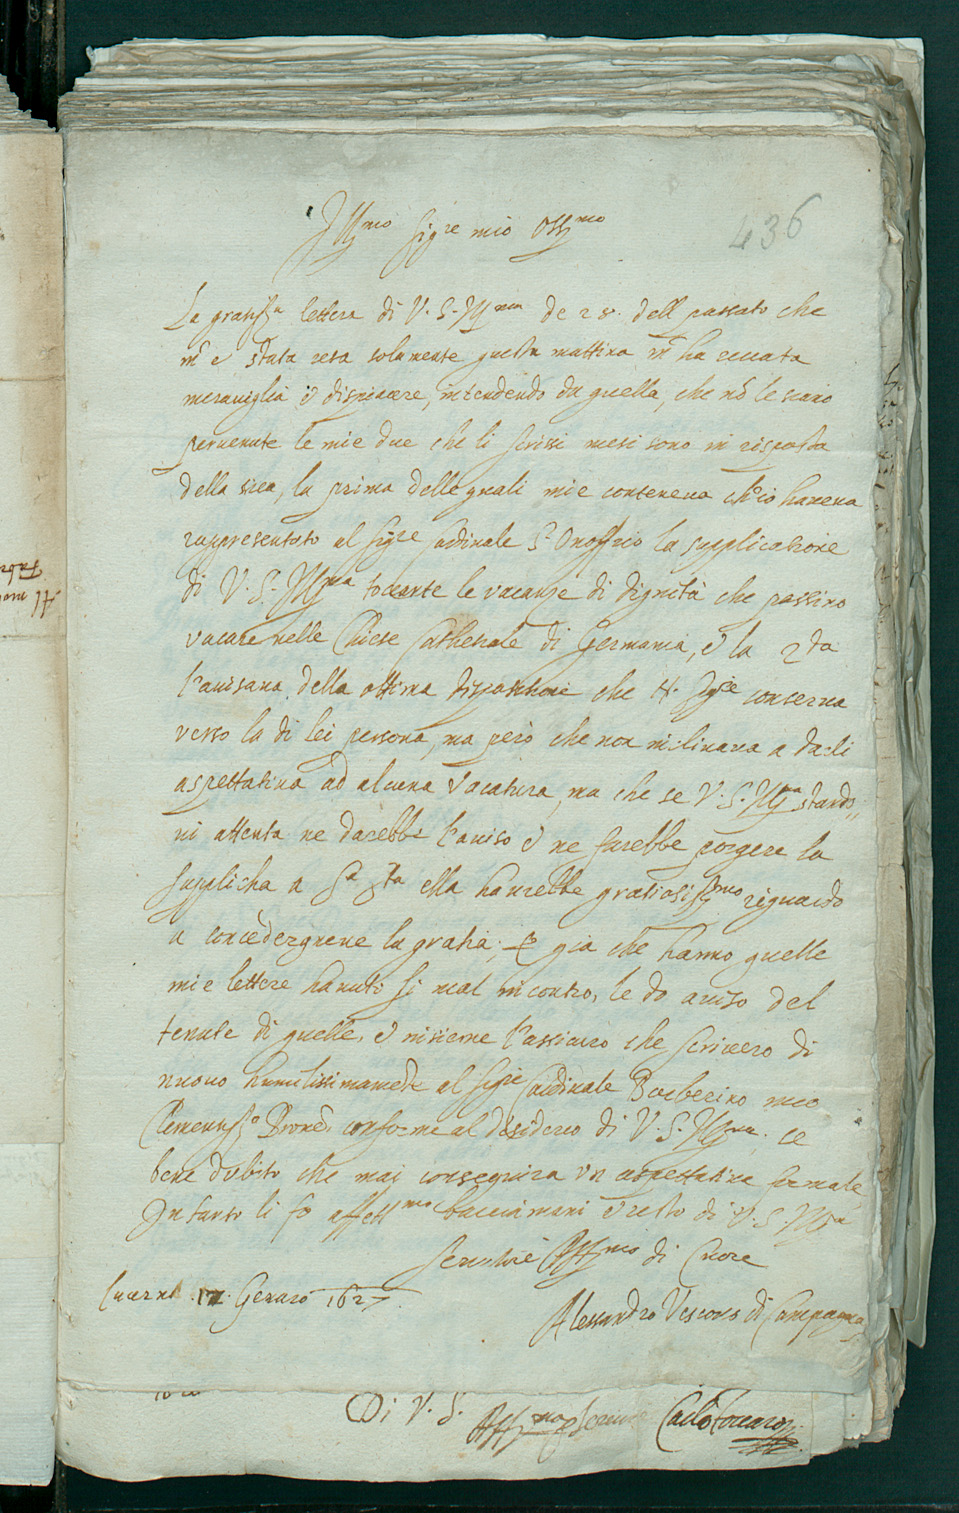 436
Ill.mo Sig.re mio Oss.mo
La gratiss.a lettera di V. S. Ill.ma de 28. dell passato che
m'e stata resa solamente questa mattina m'ha recata
meraviglia et dispiacere, intendendo da quella, che nō le siano
pervenute le mie due che li scrissi mesi sono in risposta
della sua, la prima delle quali mie conteneva ch'io haveva
rappresentato al Sig.re Cardinale S.to Onoffrio la supplicatione
di V. S. Ill.ma toccante le vacanze di dignità che possino
vacare nelle Chiese Cathedrale di Germania, et la 2da
l'avisava della ottima dispositione che N. Sig.re conserva
verso la di lei persona, ma però che non inclinava a darli
aspettativa ad alcuna vacatura, ma che se V. S. Ill.ma stando„
ni attenta ne darebbe l'aviso et ne farebbe porgere la
supplicha a S.a S.ta ella haurebbe gratiosiss.mo riguardo
a concedergnene la gratia; et già che hanno quelle
mie lettere havuto si mal incontro, le do aviso del
tenute di quelle, et insieme l'assicuro che scrivero di
nuovo humilissimamente al Sig.re Cardinale Barberino meo
Clementiss.o Prone. conforme al desiderio di V. S. Ill.ma. se
bene dubito che mai conseguira un aspettativa formale,
In tanto li fò affett.mo bacciamani et resto di V. S. Ill.ma
Servitore Aff.mo di Cuore
Lucerna 17. Genaro 1627.
Alessandro Vescovo di Campagna
Di V. S.
Aff.mo per Servire Carlo